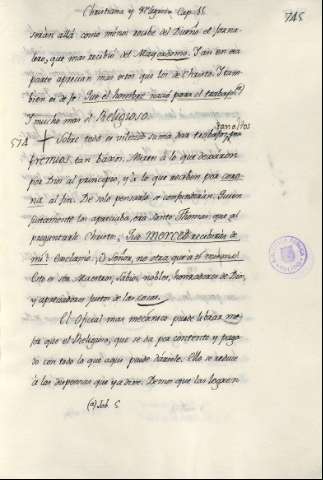 Christiana y Religiosa Cap. 41.
745
serán allá como menos recibe del Dueño el jorna-
lero, que mas recibió del Mayordomo. I aun en esa
parte aprecian mas estos que los de Christo. I tam-
bien es de fe: Que el hombre nació para el trabajo (a)
I mucho mas el Religioso.
514 + Sobre todo es interés suma para trabajar por
tan altos
premios tan baxos. Miren à lo que dexaron
por Dios al principio, y à lo que reciben por coro-
na al fin. De solo pensarlo se confundirán. Quien
justamente los apreciaba, era Santo Thomas, que al
preguntarle Christo: Que merced recibirás de
mi? Exclamó: O Señor, no otra, que a ti mismo.
Este es otro Maestro, sabio, noble, honrador de Dios,
y apreciador justo de las cosas.
El Oficial mas mecánico puede librar me-
jor que el Religioso, que se da por contento y paga-
do con todo lo que aqui puede dársele. Ello se reduce
à las dispensas que ya dixe. Demos que las logren
(a) Job. 5